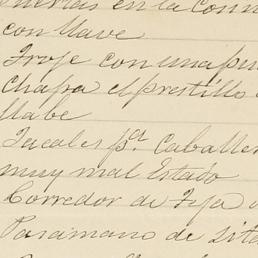 Puertas en la Conn
con llave
Troje con una pu
chapa el prestillo
llabe
Jacales pª. Caballer
muy mal Estado
Corredor de Teja
Pasamano de